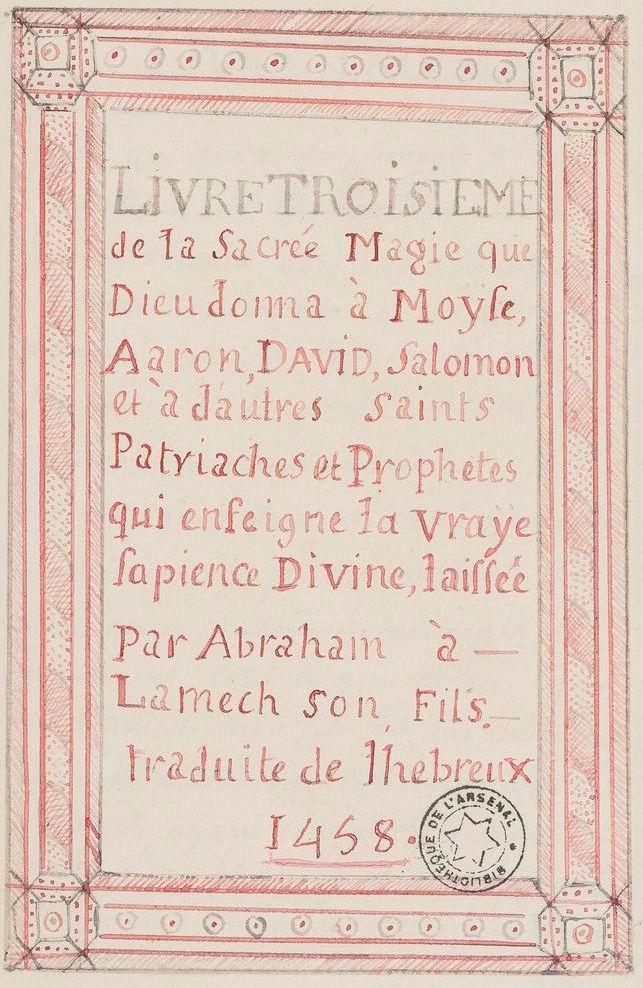 LIVRE TROISIEME
de la Sacrée Magie que
Dieu donna à Moyse,
Aaron, DAVID, Salomon
et à d'autres saints
Patriaches et Prophetes
qui enseigne la vraÿe
sapience Divine, laissée
par Abraham à —
Lamech son Fils. —
traduite de lhebreux
1458.
BIBLIOTHEQUE DE L'ARSENAL